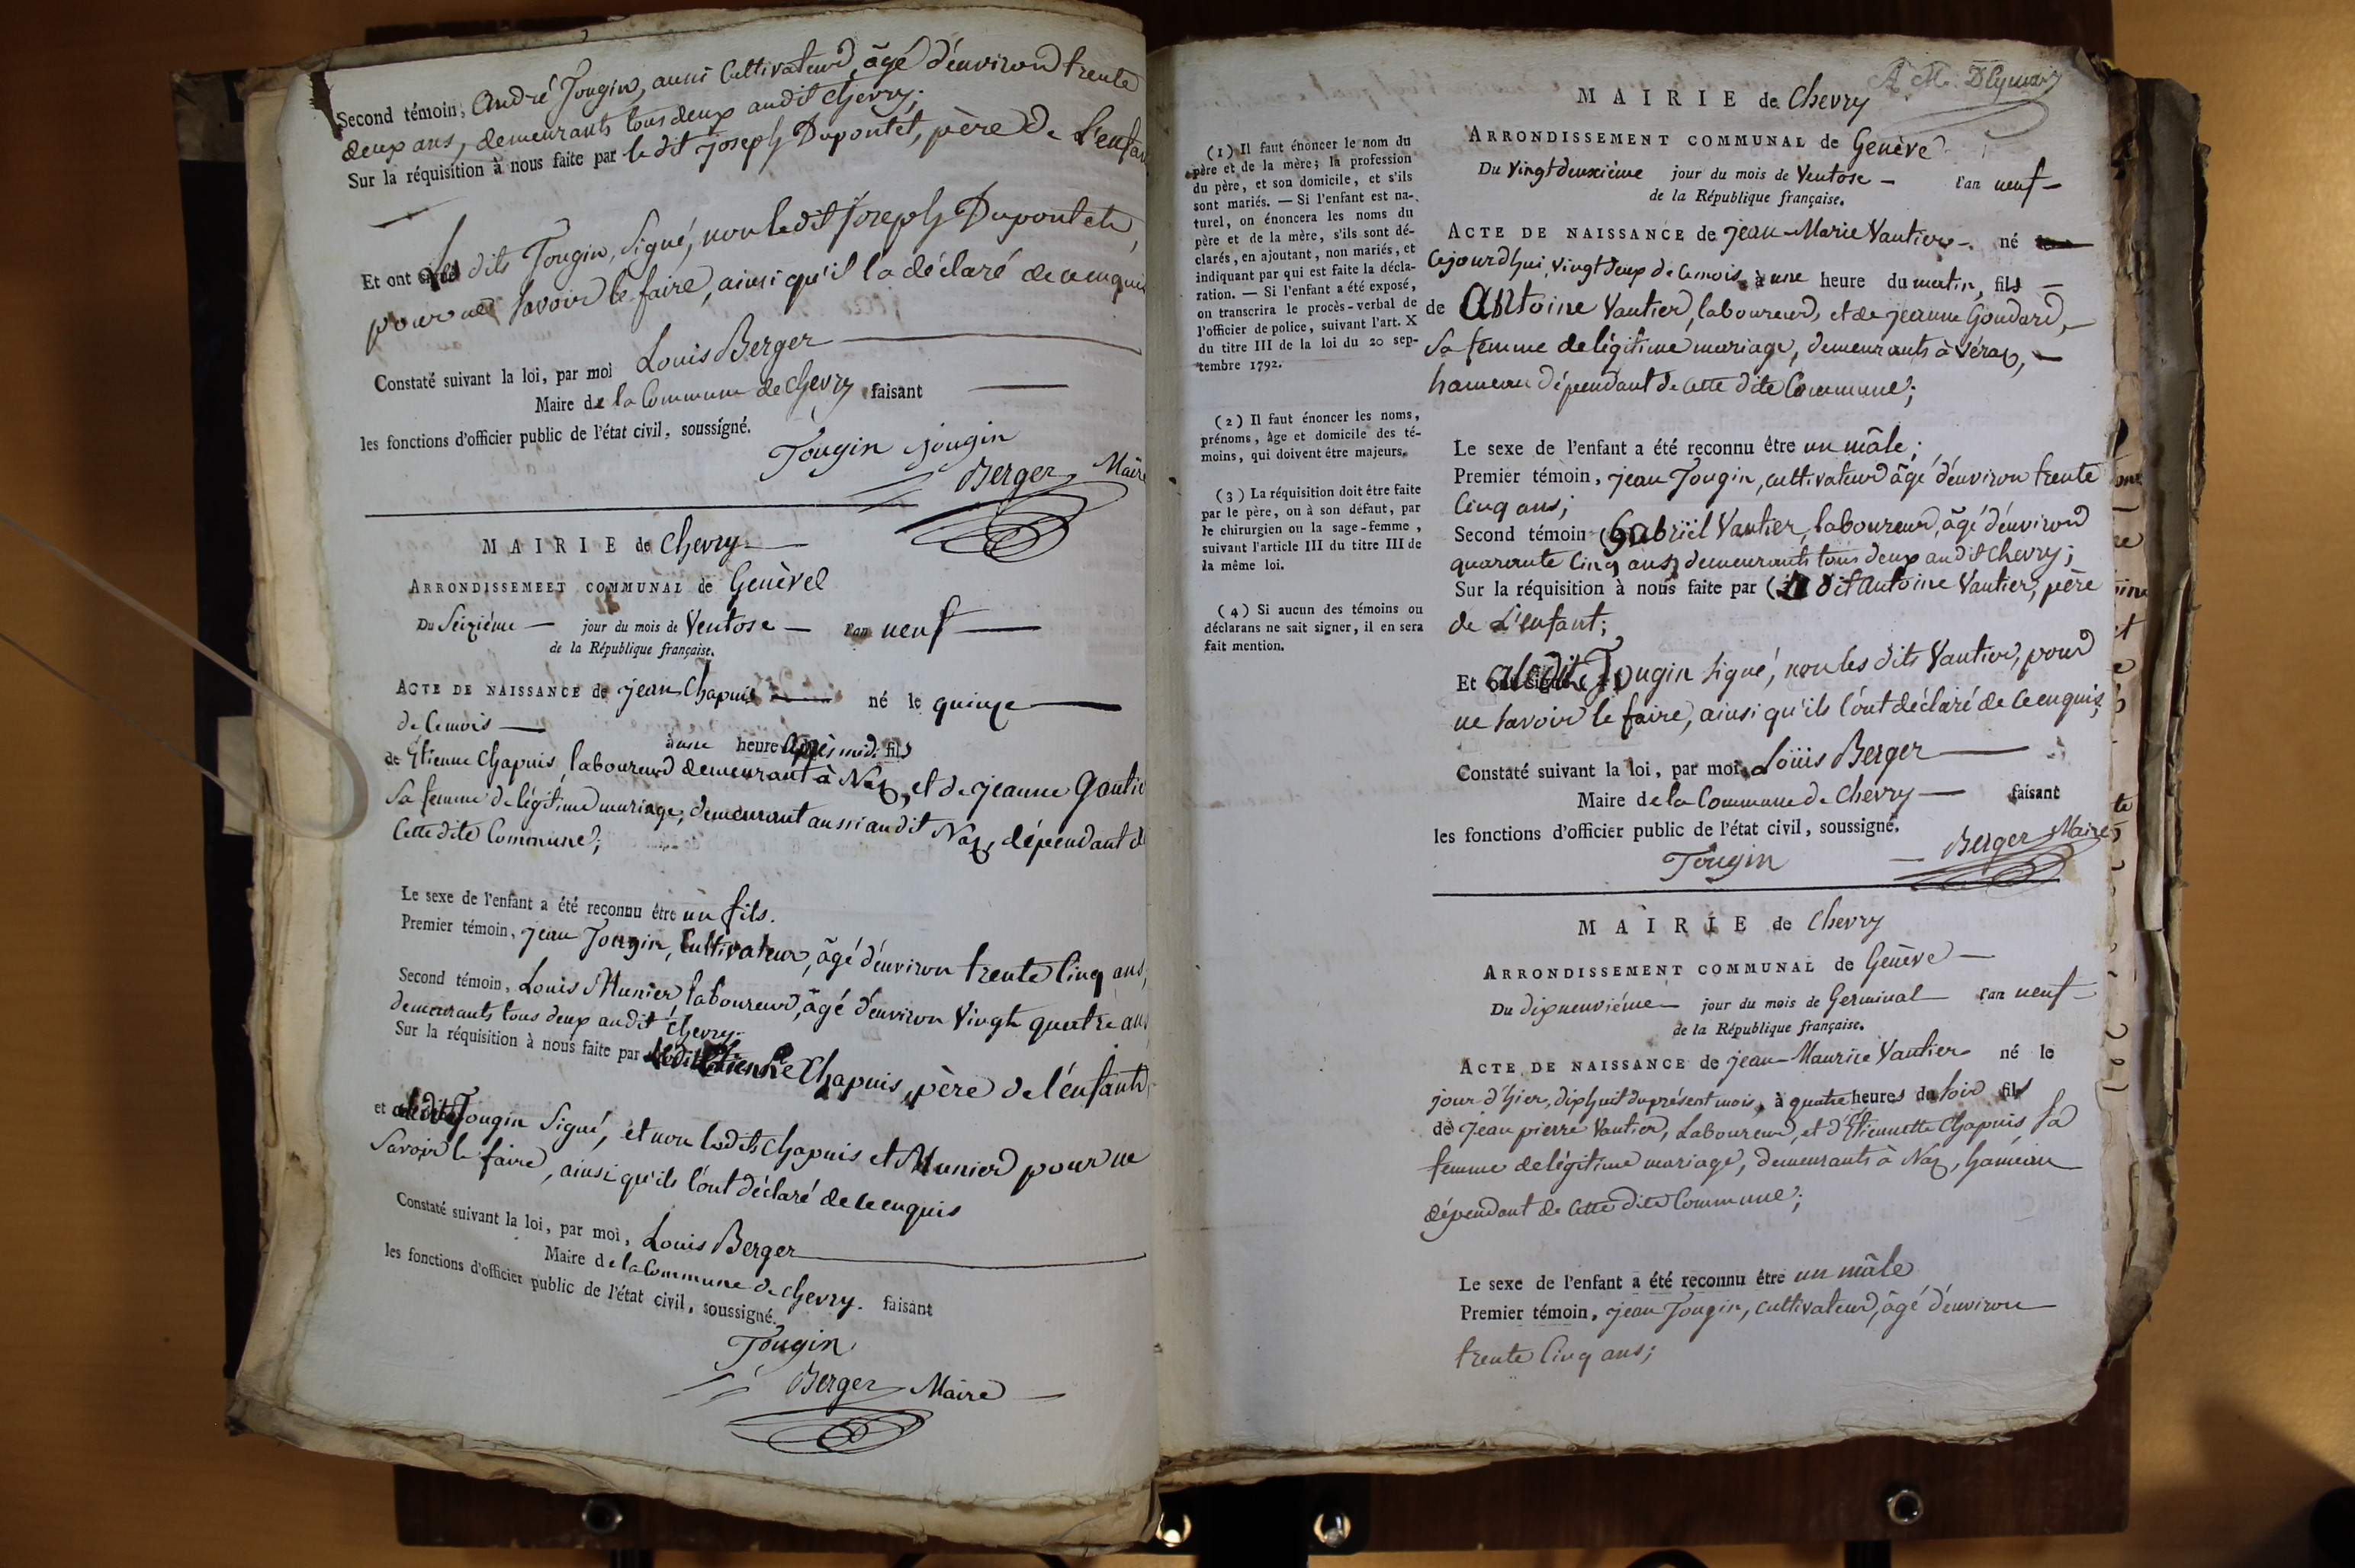 Second témoin, André Jougin, aussi Cultivateur, âgé d'environ trente
deux ans, demeurants tous deux audit Chevry;
Sur la réquisition à nous faite par le dit joseph Dupontet, père de L'enfan
Et ont les dits Jougin, Signé, non le dit Joseph Dupontet,
pour ne savoir le faire, ainsi qu'il l'a déclaré de ce enquis
Constaté suivant la loi, par moi Louis Berger
Maire de la Commune de Chevry faisant
les fonctions d'officier public de l'état civil, soussigné.
Jougin jougin
Berger Maire
MAIRIE de Chevry
ARRONDISSEMEET COMMUNAL de Genève
Du Seizième jour du mois de Ventose l'an neuf
de la République française.
ACTE DE NAISSANCE de jean Chapuis né le quinze
de ce mois
à une heure après midi fils
de Etienne Chapuis, laboureur demeurant à Naz, et de jeanne Gautie
Sa femme de légitime mariage, demeurant aussi audit Naz, dépendant de
Cette dite Commune;
Le sexe de l'enfant a été reconnu être un fils.
Premier témoin, jean Jougin, Cultivateur, âgé d'environ trente Cinq ans,
Second témoin, Louis Munier, laboureur, âgé d'environ Vingt quatre ans
demeurants tous deux audit Chevry.
Sur la réquisition à nous faite par ledit Etienne Chapuis, père de l'enfant
et a ledit Jougin Signé, et non lesdits Chapuis et Munier pour ne
Savoir le faire, ainsi qu'ils l'ont déclaré de ce enquis
Constaté suivant la loi, par moi, Louis Berger
Maire de la Commune de Chevry. faisant
les fonctions d'officier public de l'état civil, soussigné.
Jougin
Berger Maire
(1) Il faut énoncer le nom du
père et de la mère; la profession
du père, et son domicile, et s'ils
sont mariés. — Si l'enfant est na-
turel, on énoncera les noms du
père et de la mère, s'ils sont dé-
clarés, en ajoutant, non mariés, et
indiquant par qui est faite la décla-
ration. — Si l'enfant a été exposé,
on transcrira le procès-verbal de
l'officier de police, suivant l'art. X
du titre III de la loi du 20 sep-
tembre 1792.
(2) Il faut énoncer les noms,
prénoms, âge et domicile des té-
moins, qui doivent être majeurs.
(3) La réquisition doit être faite
par le père, ou à son défaut, par
le chirurgien ou la sage-femme,
suivant l'article III du titre III de
la même loi.
(4) Si aucun des témoins ou
déclarans ne sait signer, il en sera
fait mention.
MAIRIE de Chevry
ARRONDISSEMENT COMMUNAL de Genève
Du Vingt deuxième jour du mois de Ventose l'an neuf
de la République française.
ACTE DE NAISSANCE de jean-Marie Vautier né
cejourd'hui, vingt deux de ce mois, à une heure du matin, fils
de Antoine Vautier, laboureur, et de jeanne Goudard,
Sa femme de légitime mariage, demeurants à Véraz,
hameau dépendant de cette dite Commune;
Le sexe de l'enfant a été reconnu être un mâle;
Premier témoin, jean Jougin, cultivateur âgé d'environ trente
Cinq ans;
Second témoin Gabriël Vautier, laboureur, âgé d'environ
quarante Cinq ans, demeurants tous deux audit Chevry;
Sur la réquisition à nous faite par le dit Antoine Vautier, père
de L'enfant;
Et a ledit Jougin signé, non les dits Vautier, pour
ne savoir le faire, ainsi qu'ils l'ont déclaré de ce enquis;
Constaté suivant la loi, par moi, Loüis Berger
Maire de la Commune de Chevry faisant
les fonctions d'officier public de l'état civil, soussigné.
Jougin
Berger Maire
MAIRIE de Chevry
ARRONDISSEMENT COMMUNAL de Genève
Du dix neuvième jour du mois de Germinal l'an neuf
de la République française.
ACTE DE NAISSANCE de jean-Maurice Vautier né le
jour d'hier, dix huit du présent mois, à quatre heures du soir fils
de Jean pierre Vautier, Laboureur, et d'Etiennette Chapuis, sa
femme de légitime mariage, demeurants à Naz, hameau
dépendant de cette dite Commune;
Le sexe de l'enfant a été reconnu être un mâle
Premier témoin, jean Jougin, cultivateur, âgé d'environ
trente Cinq ans;